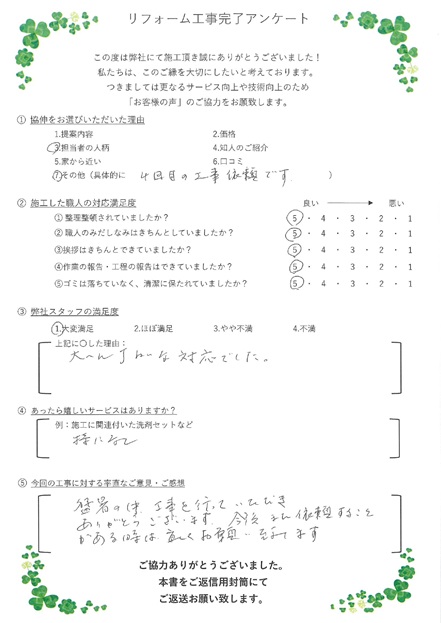 リフォーム工事完了アンケート
この度は弊社にて施工頂き誠にありがとうございました！
私たちは、このご縁を大切にしたいと考えております。
つきましては更なるサービス向上や技術向上のため
「お客様の声」のご協力をお願致します。
① 協伸をお選びいただいた理由
1.提案内容 2.価格
3.担当者の人柄 4.知人のご紹介
5.家から近い 6.口コミ
7.その他（具体的に 4回目の工事依頼です ）
② 施工した職人の対応満足度 良い 悪い
①整理整頓されていましたか？ 5 ・ 4 ・ 3 ・ 2 ・ 1
②職人のみだしなみはきちんとしていましたか？ 5 ・ 4 ・ 3 ・ 2 ・ 1
③挨拶はきちんとできていましたか？ 5 ・ 4 ・ 3 ・ 2 ・ 1
④作業の報告・工程の報告はできていましたか？ 5 ・ 4 ・ 3 ・ 2 ・ 1
⑤ゴミは落ちていなく、清潔に保たれていましたか？ 5 ・ 4 ・ 3 ・ 2 ・ 1
③ 弊社スタッフの満足度
1.大変満足 2.ほぼ満足 3.やや不満 4.不満
上記に○した理由：
対応でした。
④ あったら嬉しいサービスはありますか？
例：施工に関連付いた洗剤セットなど
特になし
⑤ 今回の工事に対する率直なご意見・ご感想
猛暑の中、工事を行っていただき
ありがとうございます。今後また依頼すること
がある時は宜しくお願い致します
ご協力ありがとうございました。
本書をご返信用封筒にて
ご返送お願い致します。